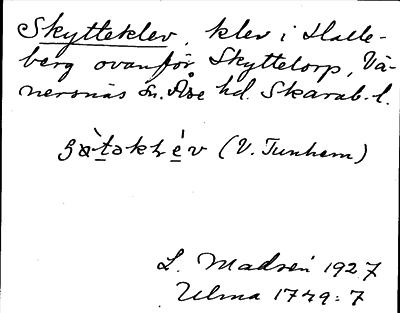 Skytteklev, klev i Halle-
berg ovanför Skyttetorp, Vä-
nersnäs sn. Åse hd. Skarab. l.
(V. Tunhem)
L. Madsén 1927
Ulma 1749:7